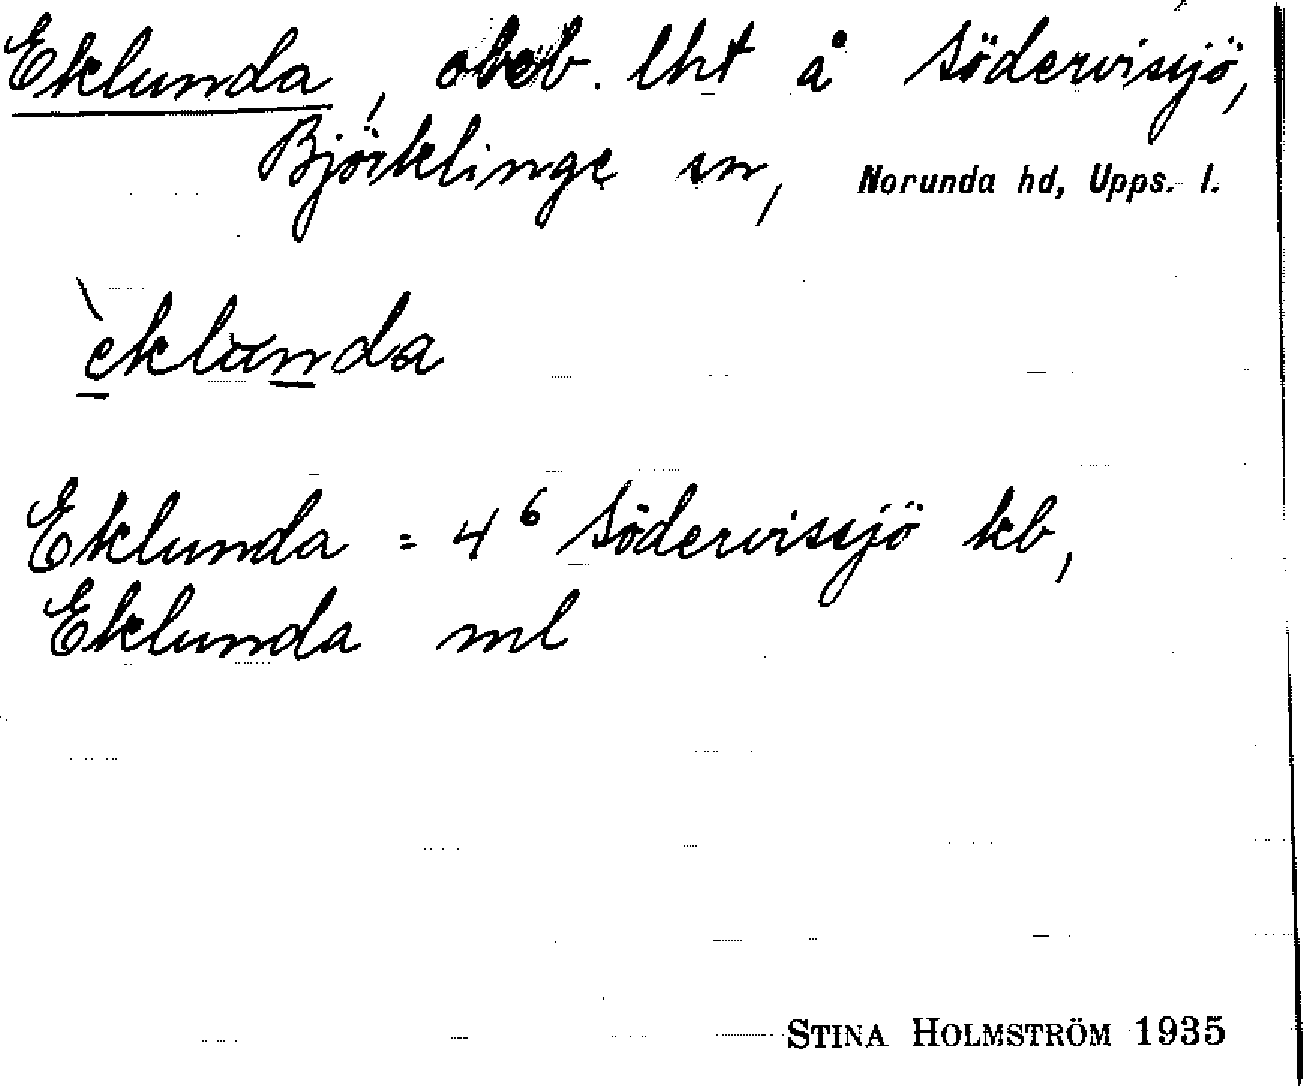 Eklunda, obeb. lht å Södervissjö,
Björklinge sn, Norunda hd, Upps. l.
̀eklunda
Eklunda = 4⁶ Södervissjö kb,
Eklunda ml
STINA HOLMSTRÖM 1935